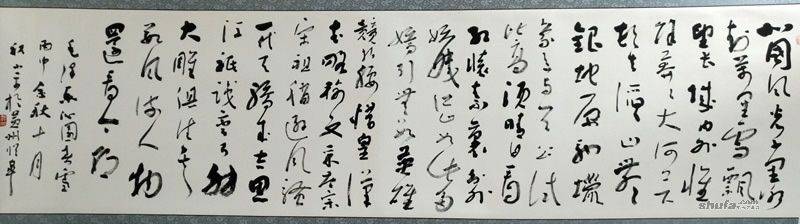 北國风光千里冰
封萬里雪飄
望长城内外惟
馀莽莽大河上下
顿失滔滔山舞
银蛇原驰蠟
象欲与天公试
比高须晴日看
红装素裹分外
妖娆江山如此多
娇引无数英雄
竞折腰惜皇漢
武略输文采唐
宋祖稍逊风骚
一代天骄成吉思
汗祗识弯弓射
大雕俱往矣
数风流人物
還看今朝
毛泽东沁园春雪
丙申金秋十月
於温州
shufa.com